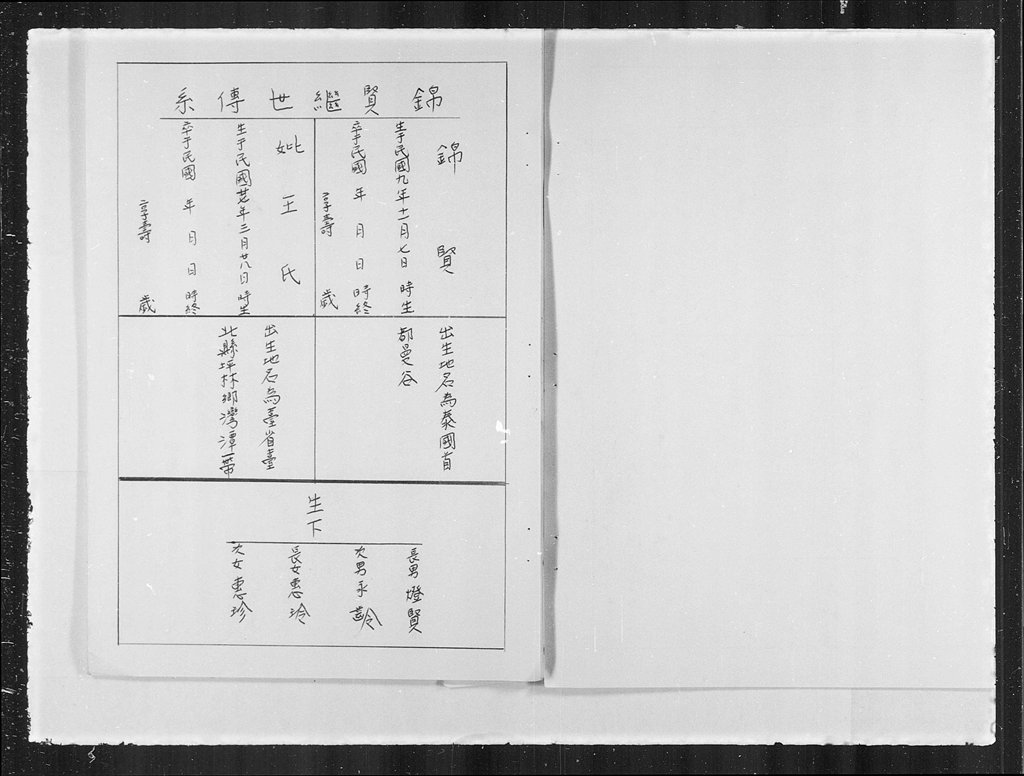 錦賢繼世傳系
錦賢
生于民國九年十一月七日時生
卒于民國 年 月 日 時終
享壽 歲
妣王氏
生于民國廿七年三月廿八日時生
卒于民國 年 月 日 時終
享壽 歲
出生地名為泰國首
都曼谷
出生地名為臺省臺
北縣坪林鄉灣潭一帶
生下
長男燈賢
次男永
長女惠玲
次女惠珍